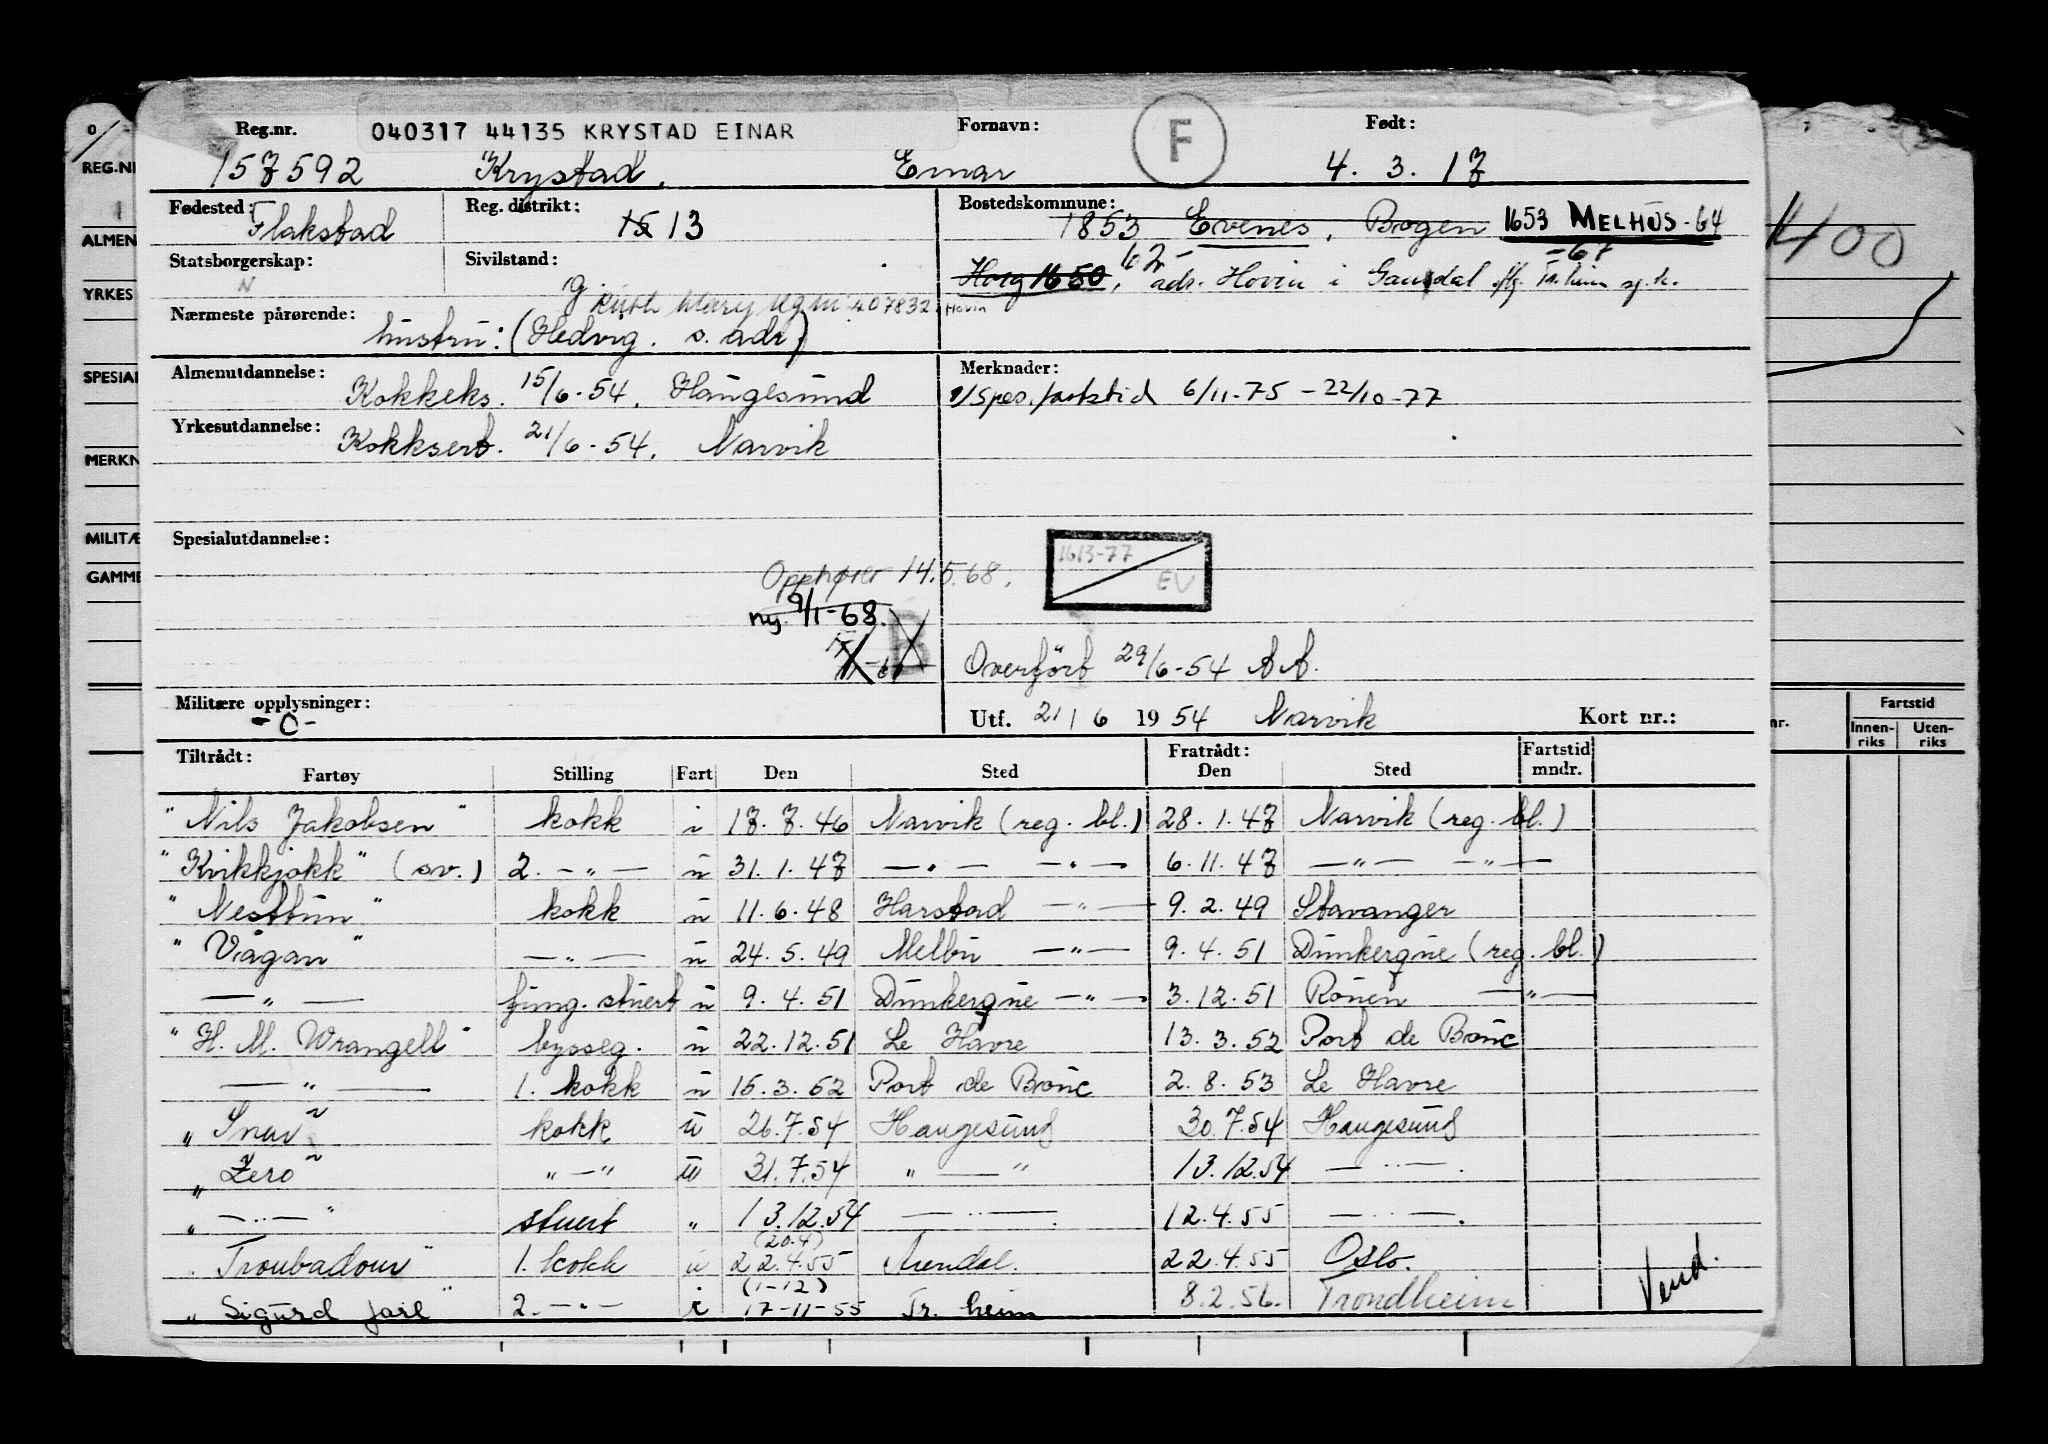 Reg.nr. 040317 44135 KRYSTAD EINAR Fornavn: F Født:
157592 Krystad, Einar 4. 3. 17
Fødested: Flakstad Reg. distrikt: 15 13 Bostedskommune: 1853 Evenes, Bogen 1653 MELHUS - 64
- 67
Statsborgerskap: N Sivilstand: g. Horg 1650, 62 - adr. Hovin i Gauldal
Ruth Mary 407832 Hovin
Nærmeste pårørende: hustru: (Hedvig. s. adr)
Almenutdannelse: Kokkeks. 15/6-54, Haugesund Merknader: Spes. fartstid 6/11-75 - 22/10-77
Yrkesutdannelse: Kokksert. 21/6-54, Narvik
Spesialutdannelse:
1613-77
EV
Opphører 14.5.68.
ny. 9/1-68. B
Overført 29/6-54 AA.
Militære opplysninger: - 0 - Utf. 21/6 1954 Narvik Kort nr.:
Tiltrådt: Fratrådt: Fartstid
Fartøy Stilling Fart Den Sted Den Sted mndr.
"Nils Jakobsen" kokk i 17.7.46 Narvik (reg. bl.) 28.1.47 Narvik (reg. bl.)
"Kvikkjokk" (sv.) 2. -"- u 31.1.47 -"- -"- 6.11.47 -"- -"-
"Nesttun" kokk u 11.6.48 Harstad -"- 9.2.49 Stavanger
"Vågan" -"- u 24.5.49 Melbu -"- 9.4.51 Dunkerque (reg. bl.)
-"- fung. stuert u 9.4.51 Dunkerque -"- 3.12.51 Rouen -"-
"H. M. Wrangell" bysseg. u 22.12.51 Le Havre 13.3.52 Port de Bouc
-"- 1. kokk u 15.3.52 Port de Bouc 2.8.53 Le Havre
"Snar" kokk u 26.7.54 Haugesund 30.7.54 Haugesund
"Zero" "-" u 31.7.54 "-" 13.12.54 -"-
"-"-" stuert " 13.12.54 -"- 12.4.55 -"-
(20.4)
"Troubadour" 1. kokk u 22.4.55 Arendal. 22.4.55 Oslo.
(1-12)
"Sigurd Jarl" 2. -"- i 17-11-55 Tr. heim 8.2.56. Trondheim
Vend.
REG.NR
ALMEN
YRKES
SPESIAL
MERKN
MILITÆ
GAMME
400
nr. Fartstid
Innen-riks Uten-riks